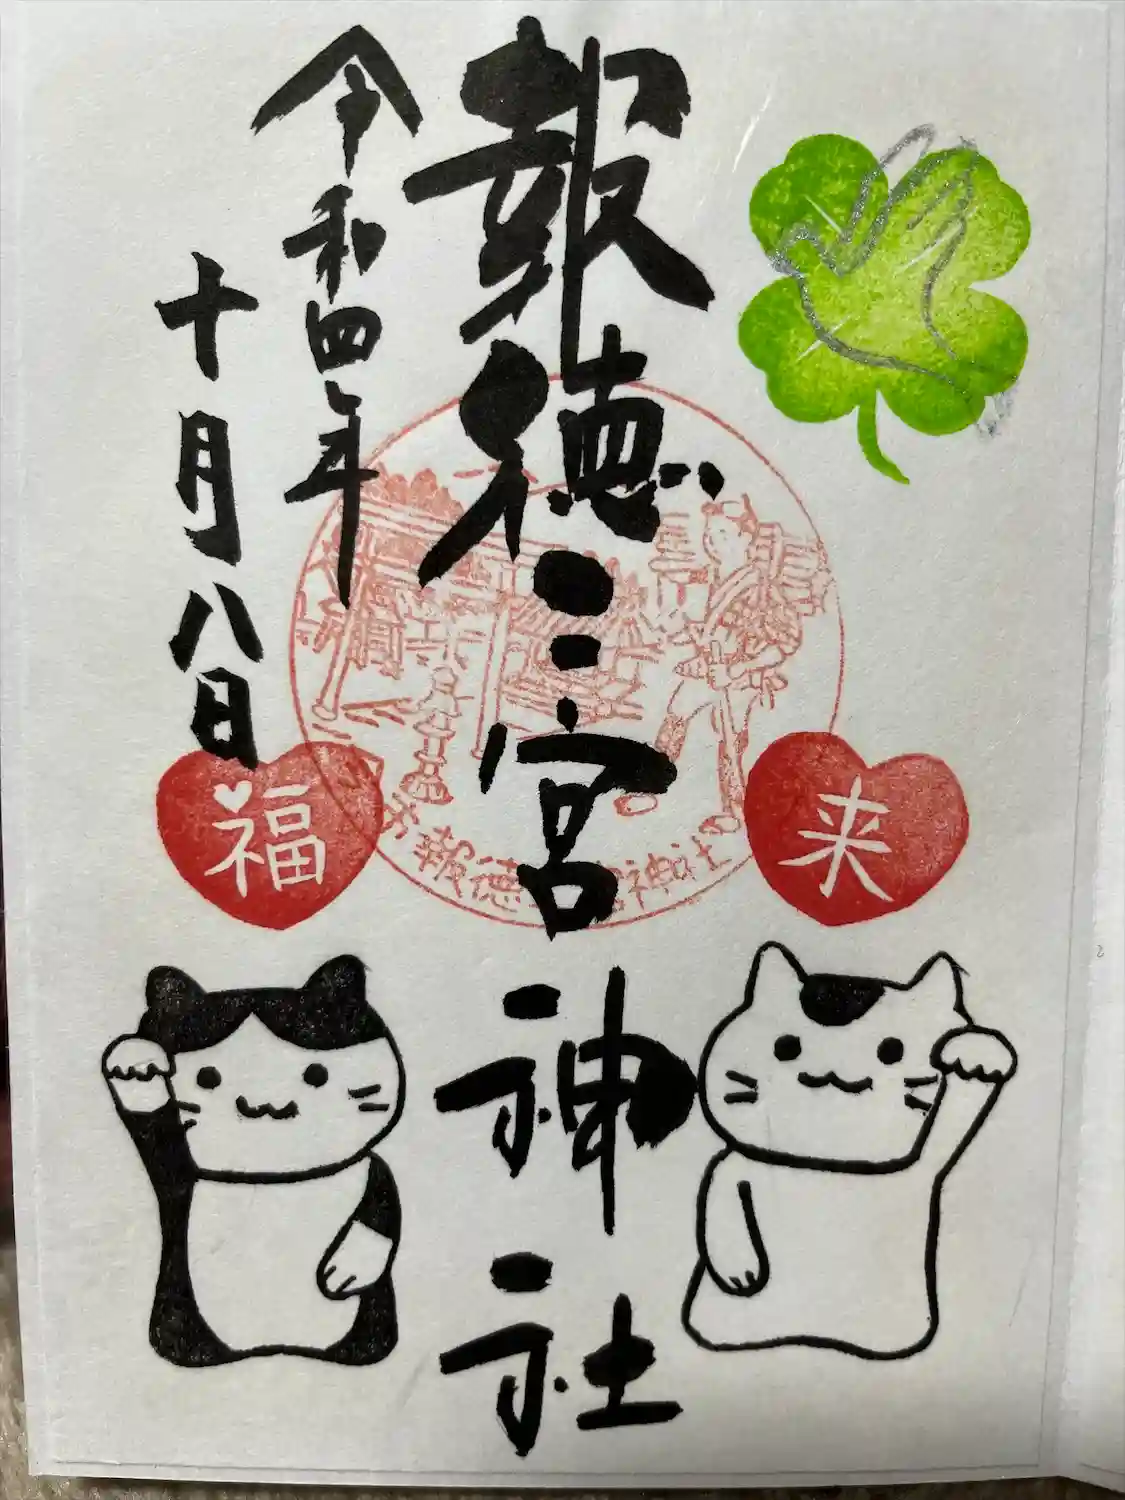 報徳二宮神社
令和四年
十月八日
来
福
報徳 神社